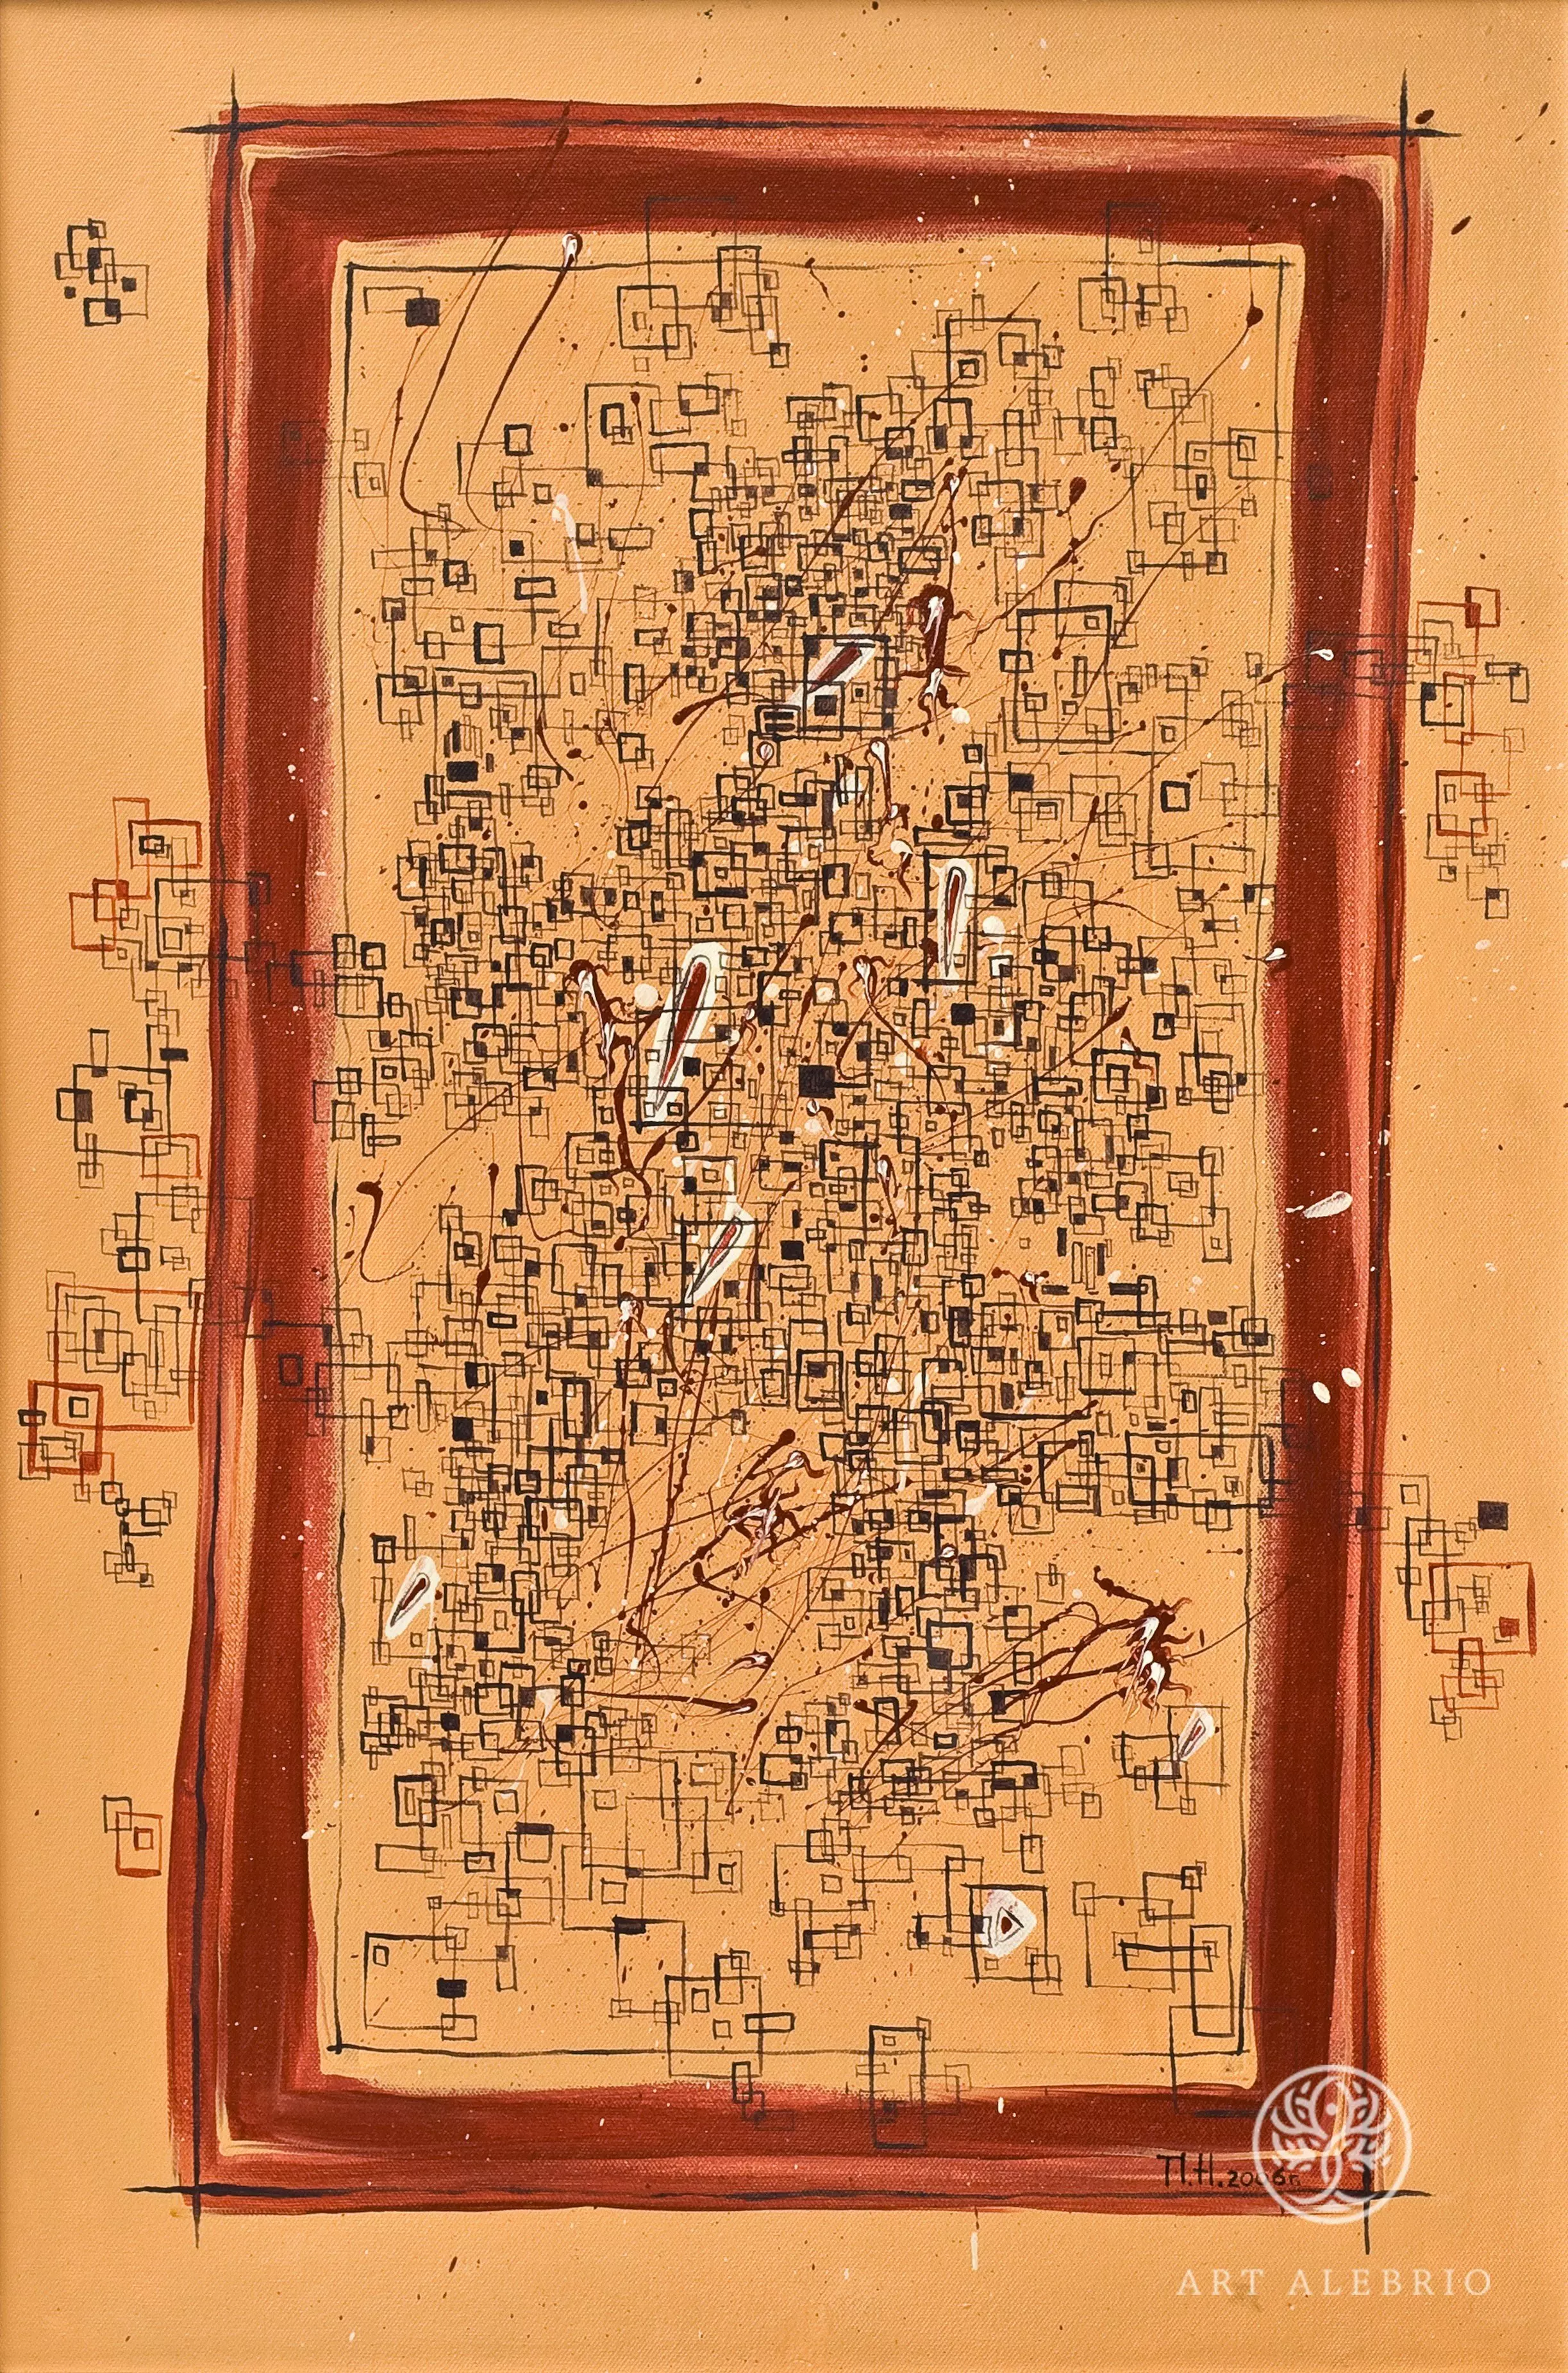 П.Н. 2006г.
ART ALEBRIO